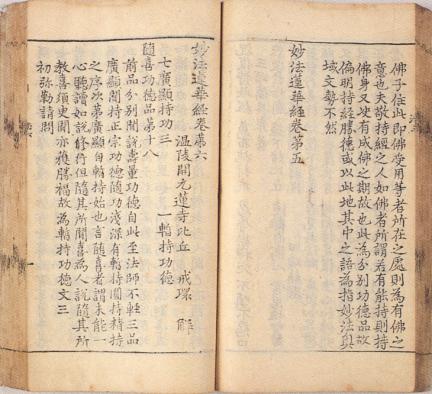 佛子住此即佛受用等者所在之處則為有佛之
意也夫敬持經之人如佛者所謂若有能持則持
佛身又使有成佛之期故也此為分別功德品故
偏明持經勝德或以此地其中之語為指妙法與
域文勢不然
妙法蓮華經卷第五
妙法蓮華經卷第六
溫陵開元蓮寺比丘 戒環 解
七廣顯持功三 一輪持功德
隨喜功德品第十八
前品分別聞說壽量功德自此至法師不輕三品
廣顯聞持正宗功德隨功淺深有輪持圓持精持
之序次第廣顯自輪持始也言隨喜者謂未能一
心聽讀如說修行但隨其所聞喜為人說隨其所
教喜須臾聞亦獲勝福故為輪持功德文三
初弥勒請問